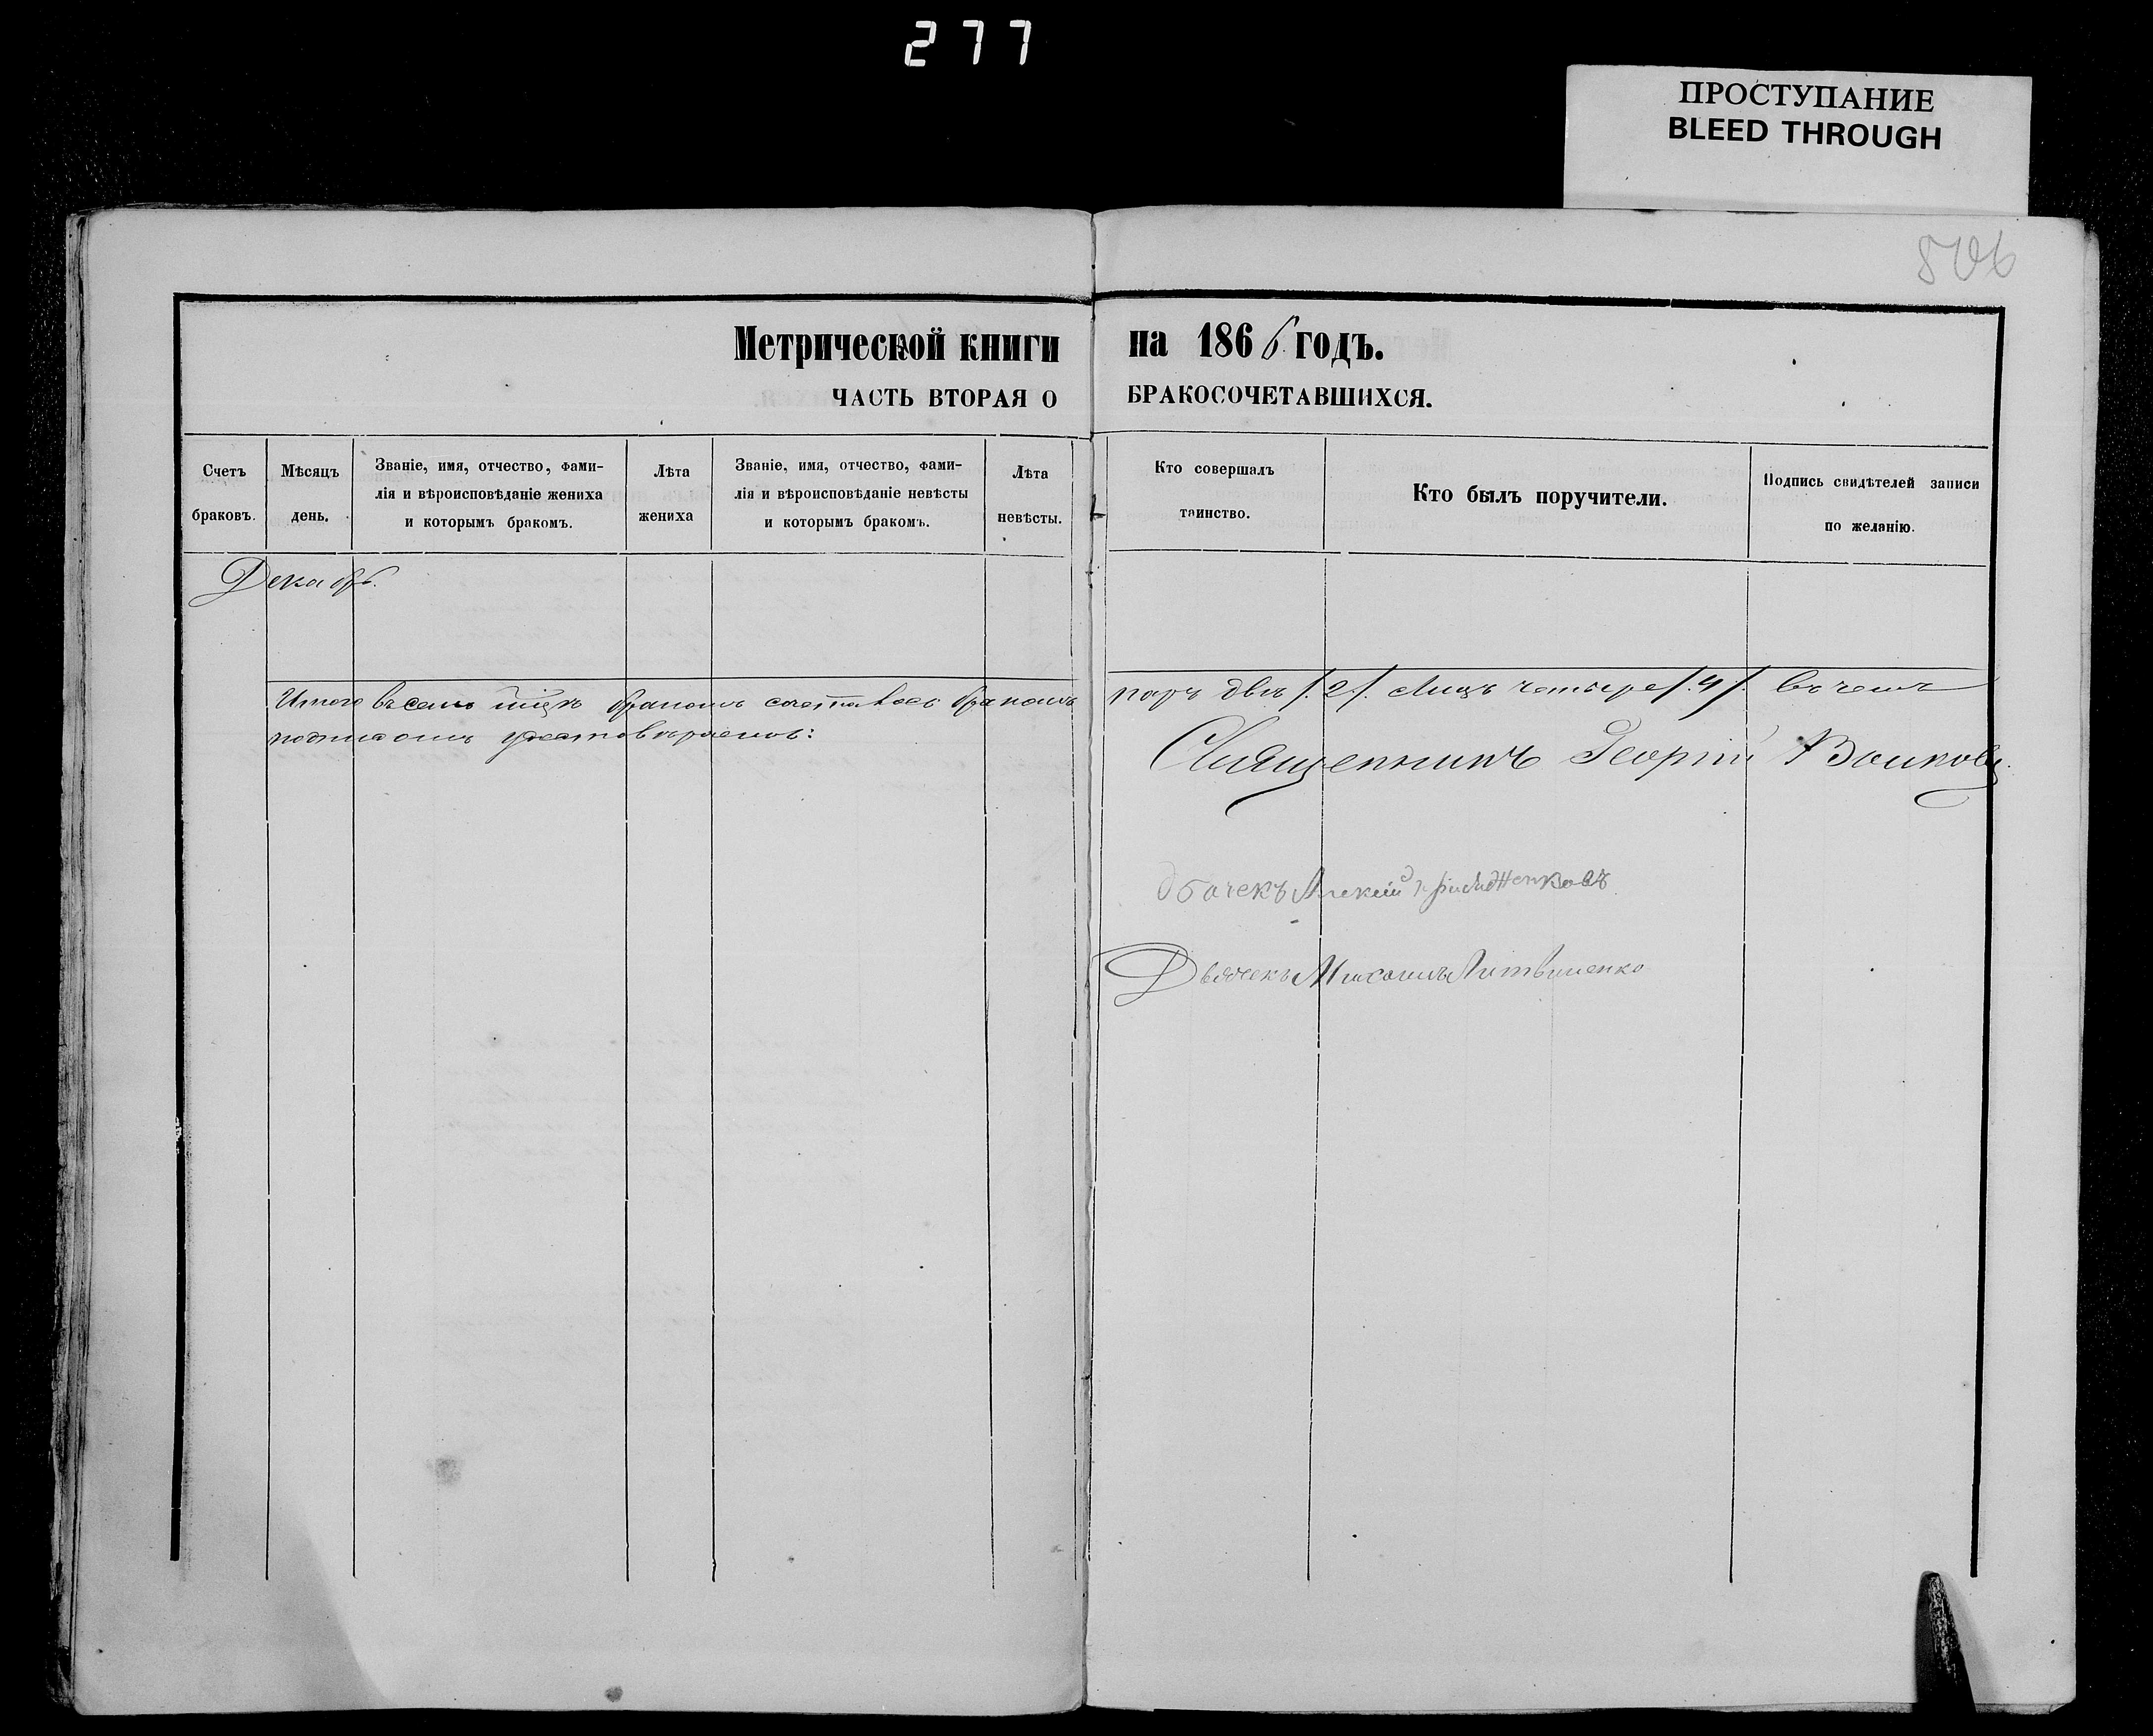 277
ПРОСТУПАНИЕ
BLEED THROUGH
506
Метрической книги на 1866 годъ.
ЧАСТЬ ВТОРАЯ О БРАКОСОЧЕТАВШИХСЯ.
Счетъ браковъ.
Мѣсяцъ день.
Званіе, имя, отчество, фами-
лія и вѣроисповѣданіе жениха
и которымъ бракомъ.
Лѣта жениха
Званіе, имя, отчество, фами-
лія и вѣроисповѣданіе невѣсты
и которымъ бракомъ.
Лѣта невѣсты.
Кто совершалъ таинство.
Кто былъ поручители.
Подпись свидѣтелей записи
по желанію.
Декабрь.
Итого въ семъ бракомъ сочеталось бракомъ паръ двѣ /.2./. Лицъ четыре /.4/. Въ чемъ
подписомъ удостовѣряемъ:
Священникъ Георгій Волковъ
Дьячекъ Алексій
Дьячекъ Михаилъ Литвиненко